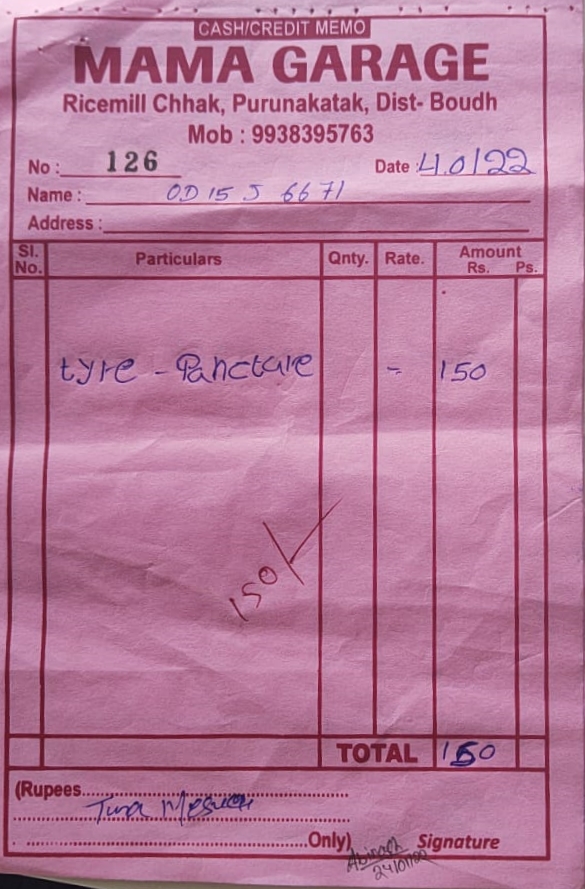 CASH/CREDIT MEMO
MAMA GARAGE
Ricemill Chhak, Purunakatak, Dist- Boudh
Mob : 9938395763
No : 126 Date :
Name : OD 15 J 6671
Address :
Sl. No. Particulars Qnty. Rate. Amount Rs. Ps.
tyre - Pancture = 150
150/-
TOTAL 150
(Rupees
Only) Signature
Abinash